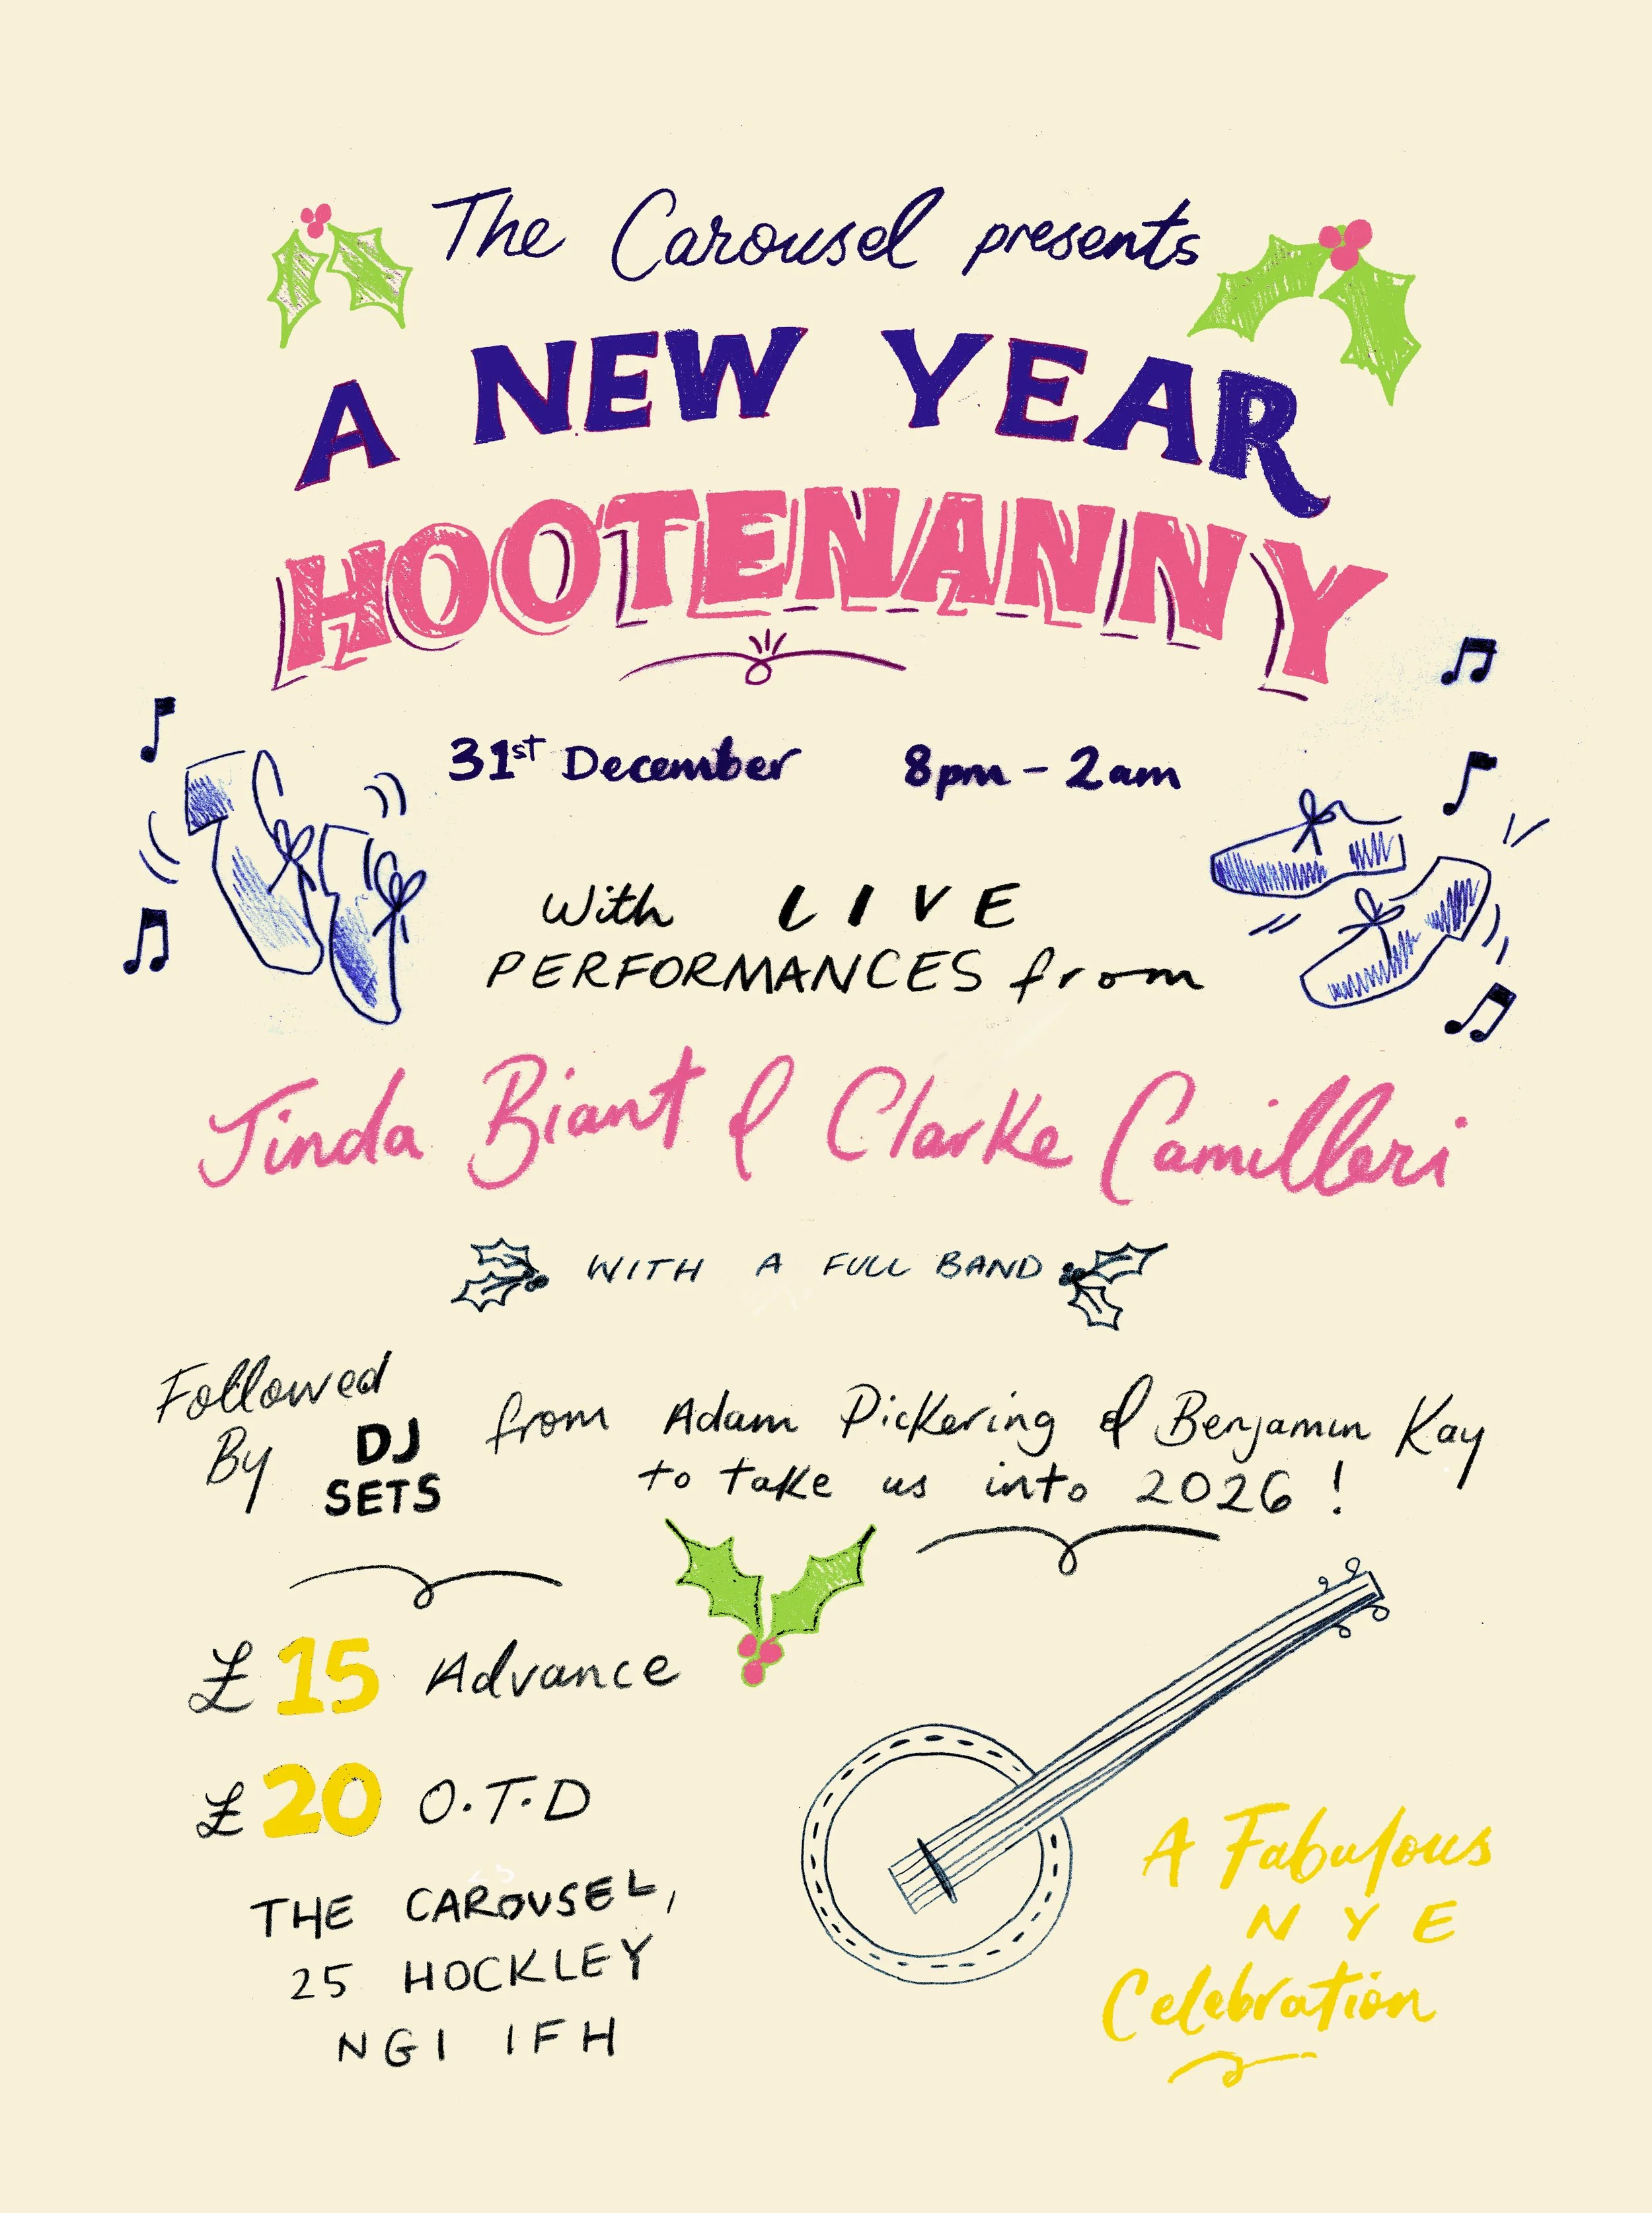 The Carousel presents
A NEW YEAR
HOOTENANNY
31st December 8pm - 2am
With LIVE
PERFORMANCES from
Jinda Biant & Clarke Camilleri
WITH A FULL BAND
Followed
By DJ SETS from Adam Pickering & Benjamin Kay
to take us into 2026!
£15 Advance
£20 O.T.D
THE CAROUSEL,
25 HOCKLEY
NG1 1FH
A Fabulous
NYE
Celebration